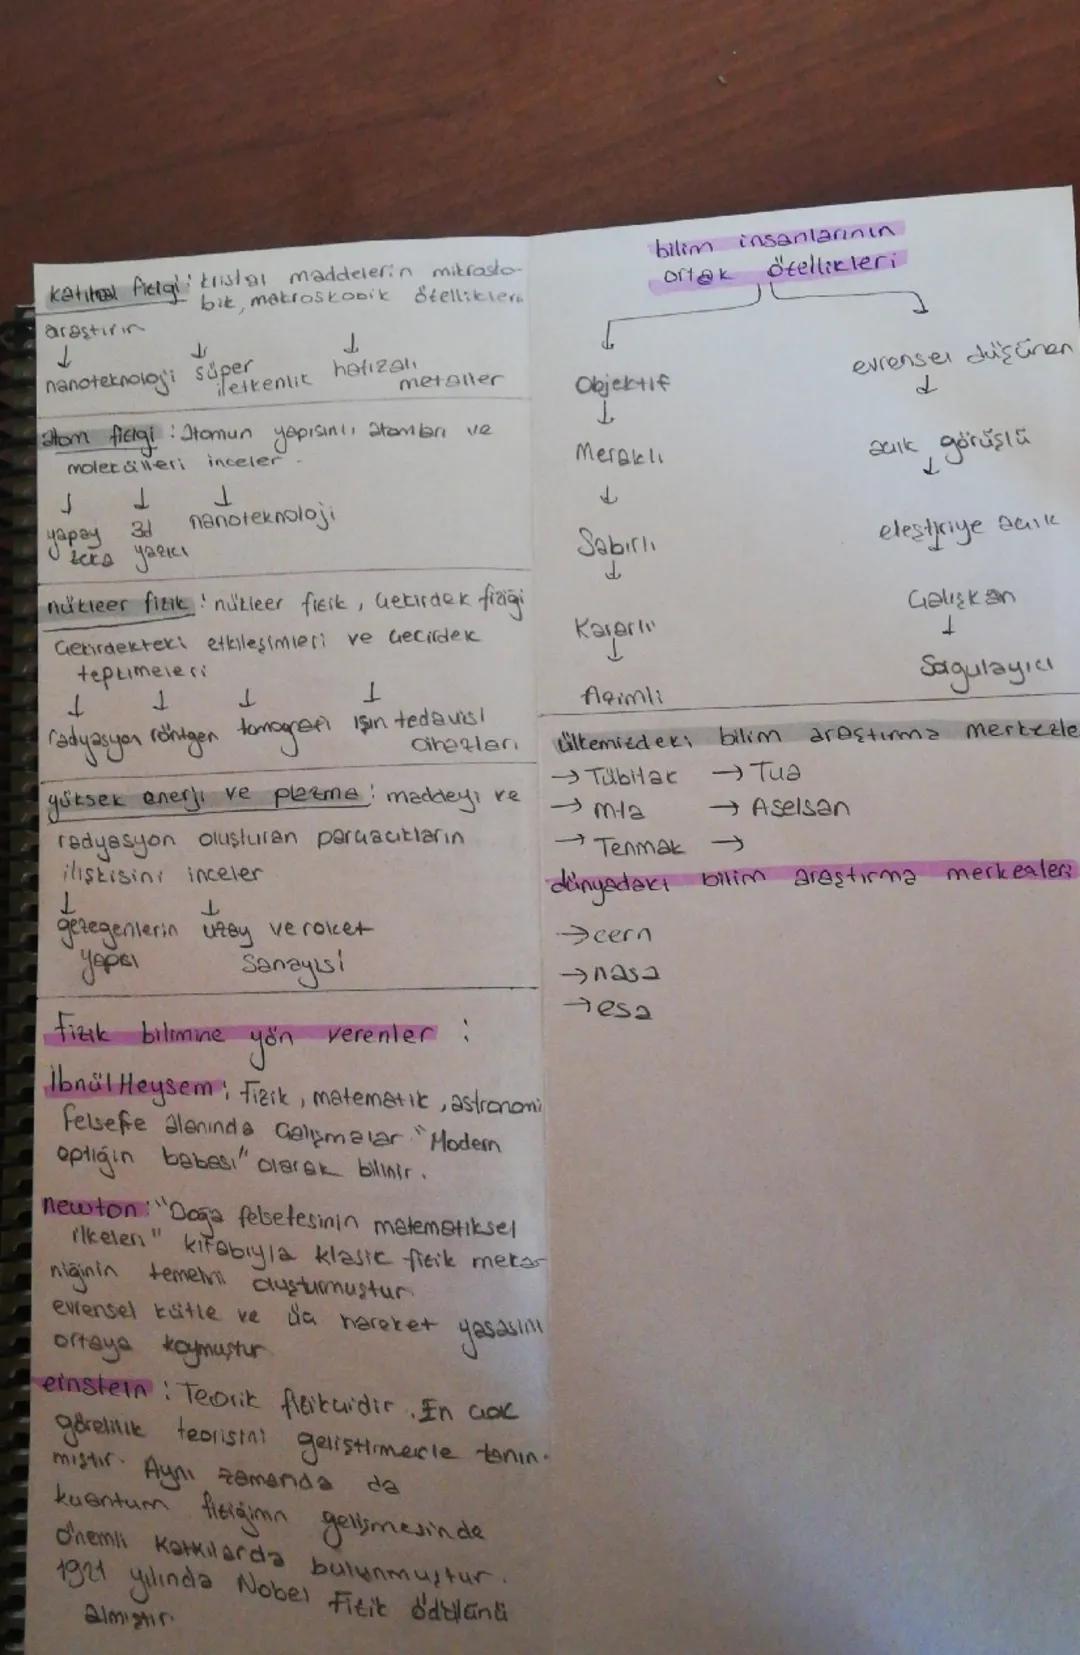 katıhal fiziği : kristal maddelerin mikrosko-
bik, makroskobik özellikleri
araştırır
nanoteknoloji süper iletkenlik hafızalı metaller
atom fiziği : Atomun yapısını, atomları ve
molekülleri inceler.
yapay zeka 3d yazıcı nanoteknoloji
nükleer fizik : nükleer fizik, Çekirdek fiziği
Çekirdekteki etkileşimleri ve Çecirdek
tepkimeleri
radyasyon röntgen tomografi ışın tedavisi cihazları
yüksek enerji ve plazma : maddeyi ve
radyasyon oluşturan parçacıkların
ilişkisini inceler
gezegenlerin yapısı uzay ve roket sanayisi
Fizik bilimine yön verenler :
İbnül Heysem ; Fizik, matematik, astronomi
felsefe alanında Çalışmalar. "Modern
optiğin babası" olarak bilinir.
newton : "Doğa felsefesinin matematiksel
ilkeleri" kitabıyla klasik fizik meka-
niğinin temelini oluşturmuştur
evrensel kütle ve üç hareket yasasını
ortaya koymuştur
einstein : Teorik fizikçidir. En çok
görelilik teorisini geliştirmekle tanın-
mıştır. Aynı zamanda da
kuantum fiziğinin gelişmesinde
önemli katkılarda bulunmuştur.
1921 yılında Nobel Fizik ödülünü
almıştır.
bilim insanlarının
ortak özellikleri
Objektif
Meraklı
Sabırlı
Kararlı
Azimli
evrensel düşünen
açık görüşlü
eleştiriye açık
Çalışkan
Sorgulayıcı
ülkemizdeki bilim araştırma merkezle
→ Tübitak → Tua
→ mta → Aselsan
→ Tenmak →
dünyadaki bilim araştırma merkezleri
→ cern
→ nasa
→ esa